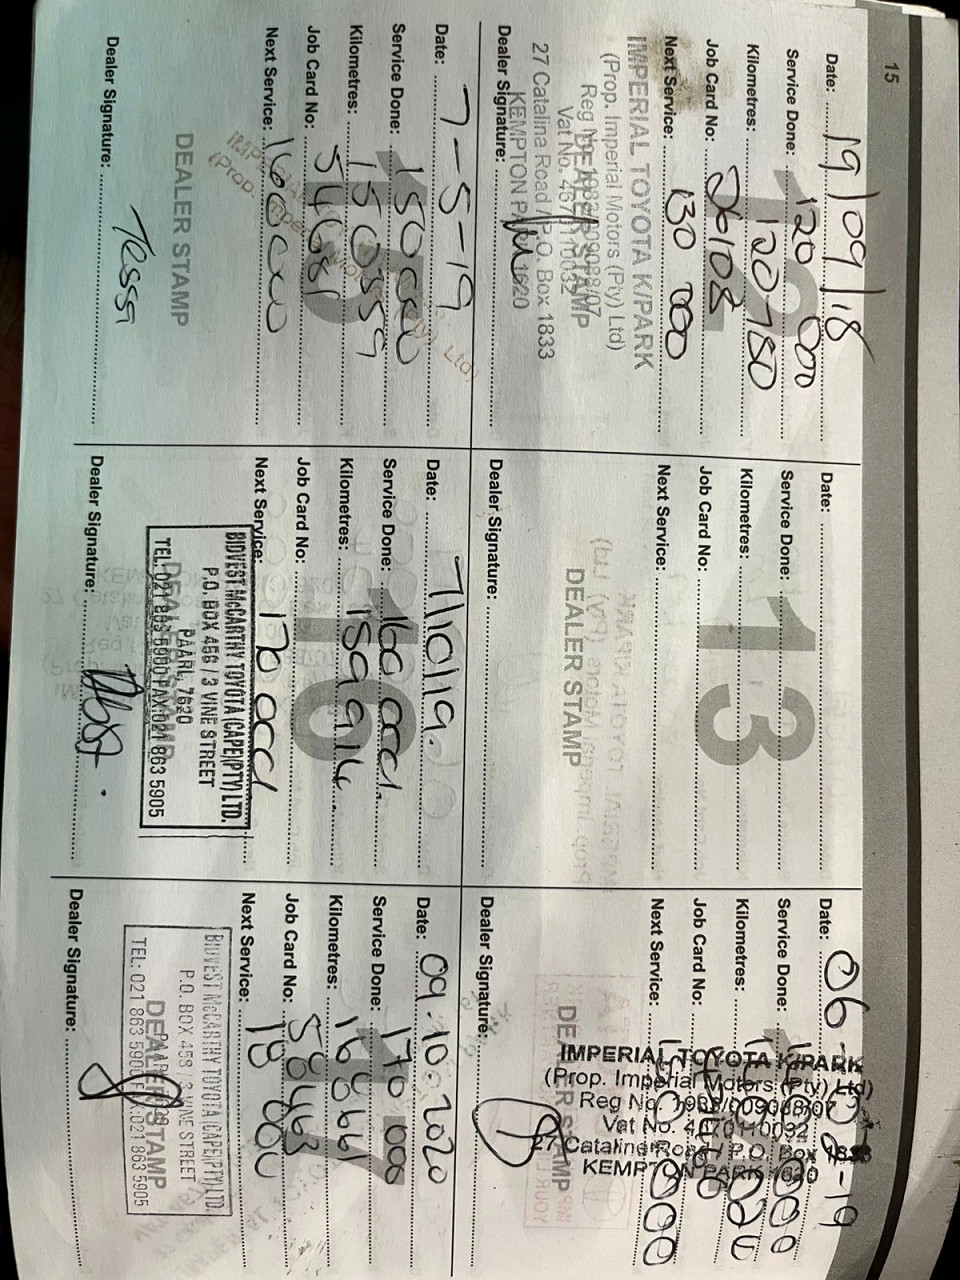 15
12
Date: 19/09/18
Service Done: 120 000
Kilometres: 120780
Job Card No: 26108
Next Service: 130 000
IMPERIAL TOYOTA K/PARK
(Prop. Imperial Motors (Pty) Ltd)
Reg No. 1983/009088/07
Vat No. 4370110032
27 Catalina Road / P.O. Box 1833
KEMPTON PARK 1620
DEALER STAMP
Dealer Signature:
13
Date:
Service Done:
Kilometres:
Job Card No:
Next Service:
DEALER STAMP
Dealer Signature:
Date: 06
Service Done:
Kilometres:
Job Card No:
Next Service:
IMPERIAL TOYOTA K/PARK
(Prop. Imperial Motors (Pty) Ltd)
Vat No. 4370110032
27 Catalina Road / P.O. Box 1833
KEMPTON PARK 1620
DEALER STAMP
Dealer Signature:
Date: 7-5-19
Service Done: 150000
Kilometres: 150559
Job Card No:
Next Service: 160000
DEALER STAMP
Dealer Signature:
16
Date: 7/10/19.
Service Done: 160 000.
Kilometres: 159914
Job Card No:
Next Service: 170 000
BIDVEST McCARTHY TOYOTA (CAPE)(PTY) LTD.
P.O. BOX 458 / 3 VINE STREET
PAARL, 7620
TEL: 021 863 5900 FAX:021 863 5905
DEALER STAMP
Dealer Signature:
17
Date: 09.10.2020
Service Done: 170 000
Kilometres: 168661
Job Card No: 58463
Next Service: 18 000
BIDVEST McCARTHY TOYOTA (CAPE)(PTY) LTD.
P.O. BOX 458 / 3 VINE STREET
TEL: 021 863 5900 FAX:021 863 5905
DEALER STAMP
Dealer Signature: